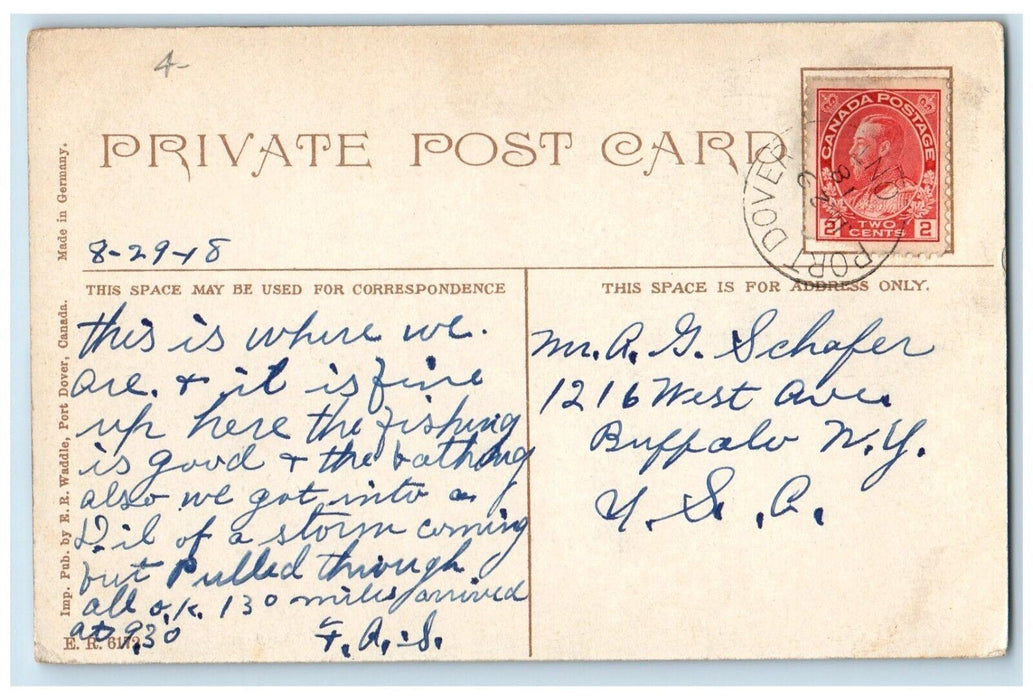 4-
PRIVATE POST CARD
CANADA POSTAGE
2 TWO CENTS 2
PORT DOVER ONT
18
Made in Germany.
Imp. Pub. by E. R. Waddle, Port Dover, Canada.
8-29-18
THIS SPACE MAY BE USED FOR CORRESPONDENCE
this is where we
are. & it is fine
up here the fishing
is good & the bathing
also we got into a
D.il of a storm coming
but Pulled through
all o.k. 130 miles arrived
at 9,30
F. A. S.
E. R. 6172
THIS SPACE IS FOR ADDRESS ONLY.
Mr. A. G. Schafer
1216 West Ave.
Buffalo N.Y.
U. S. A.